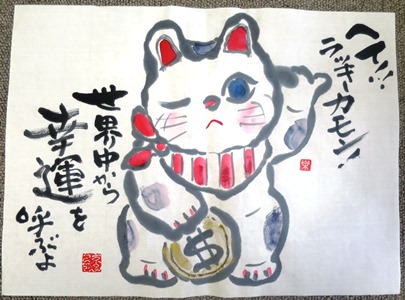 ヘイ!!
ラッキーカモン!
世界中から
幸運を
呼ぶよ
$